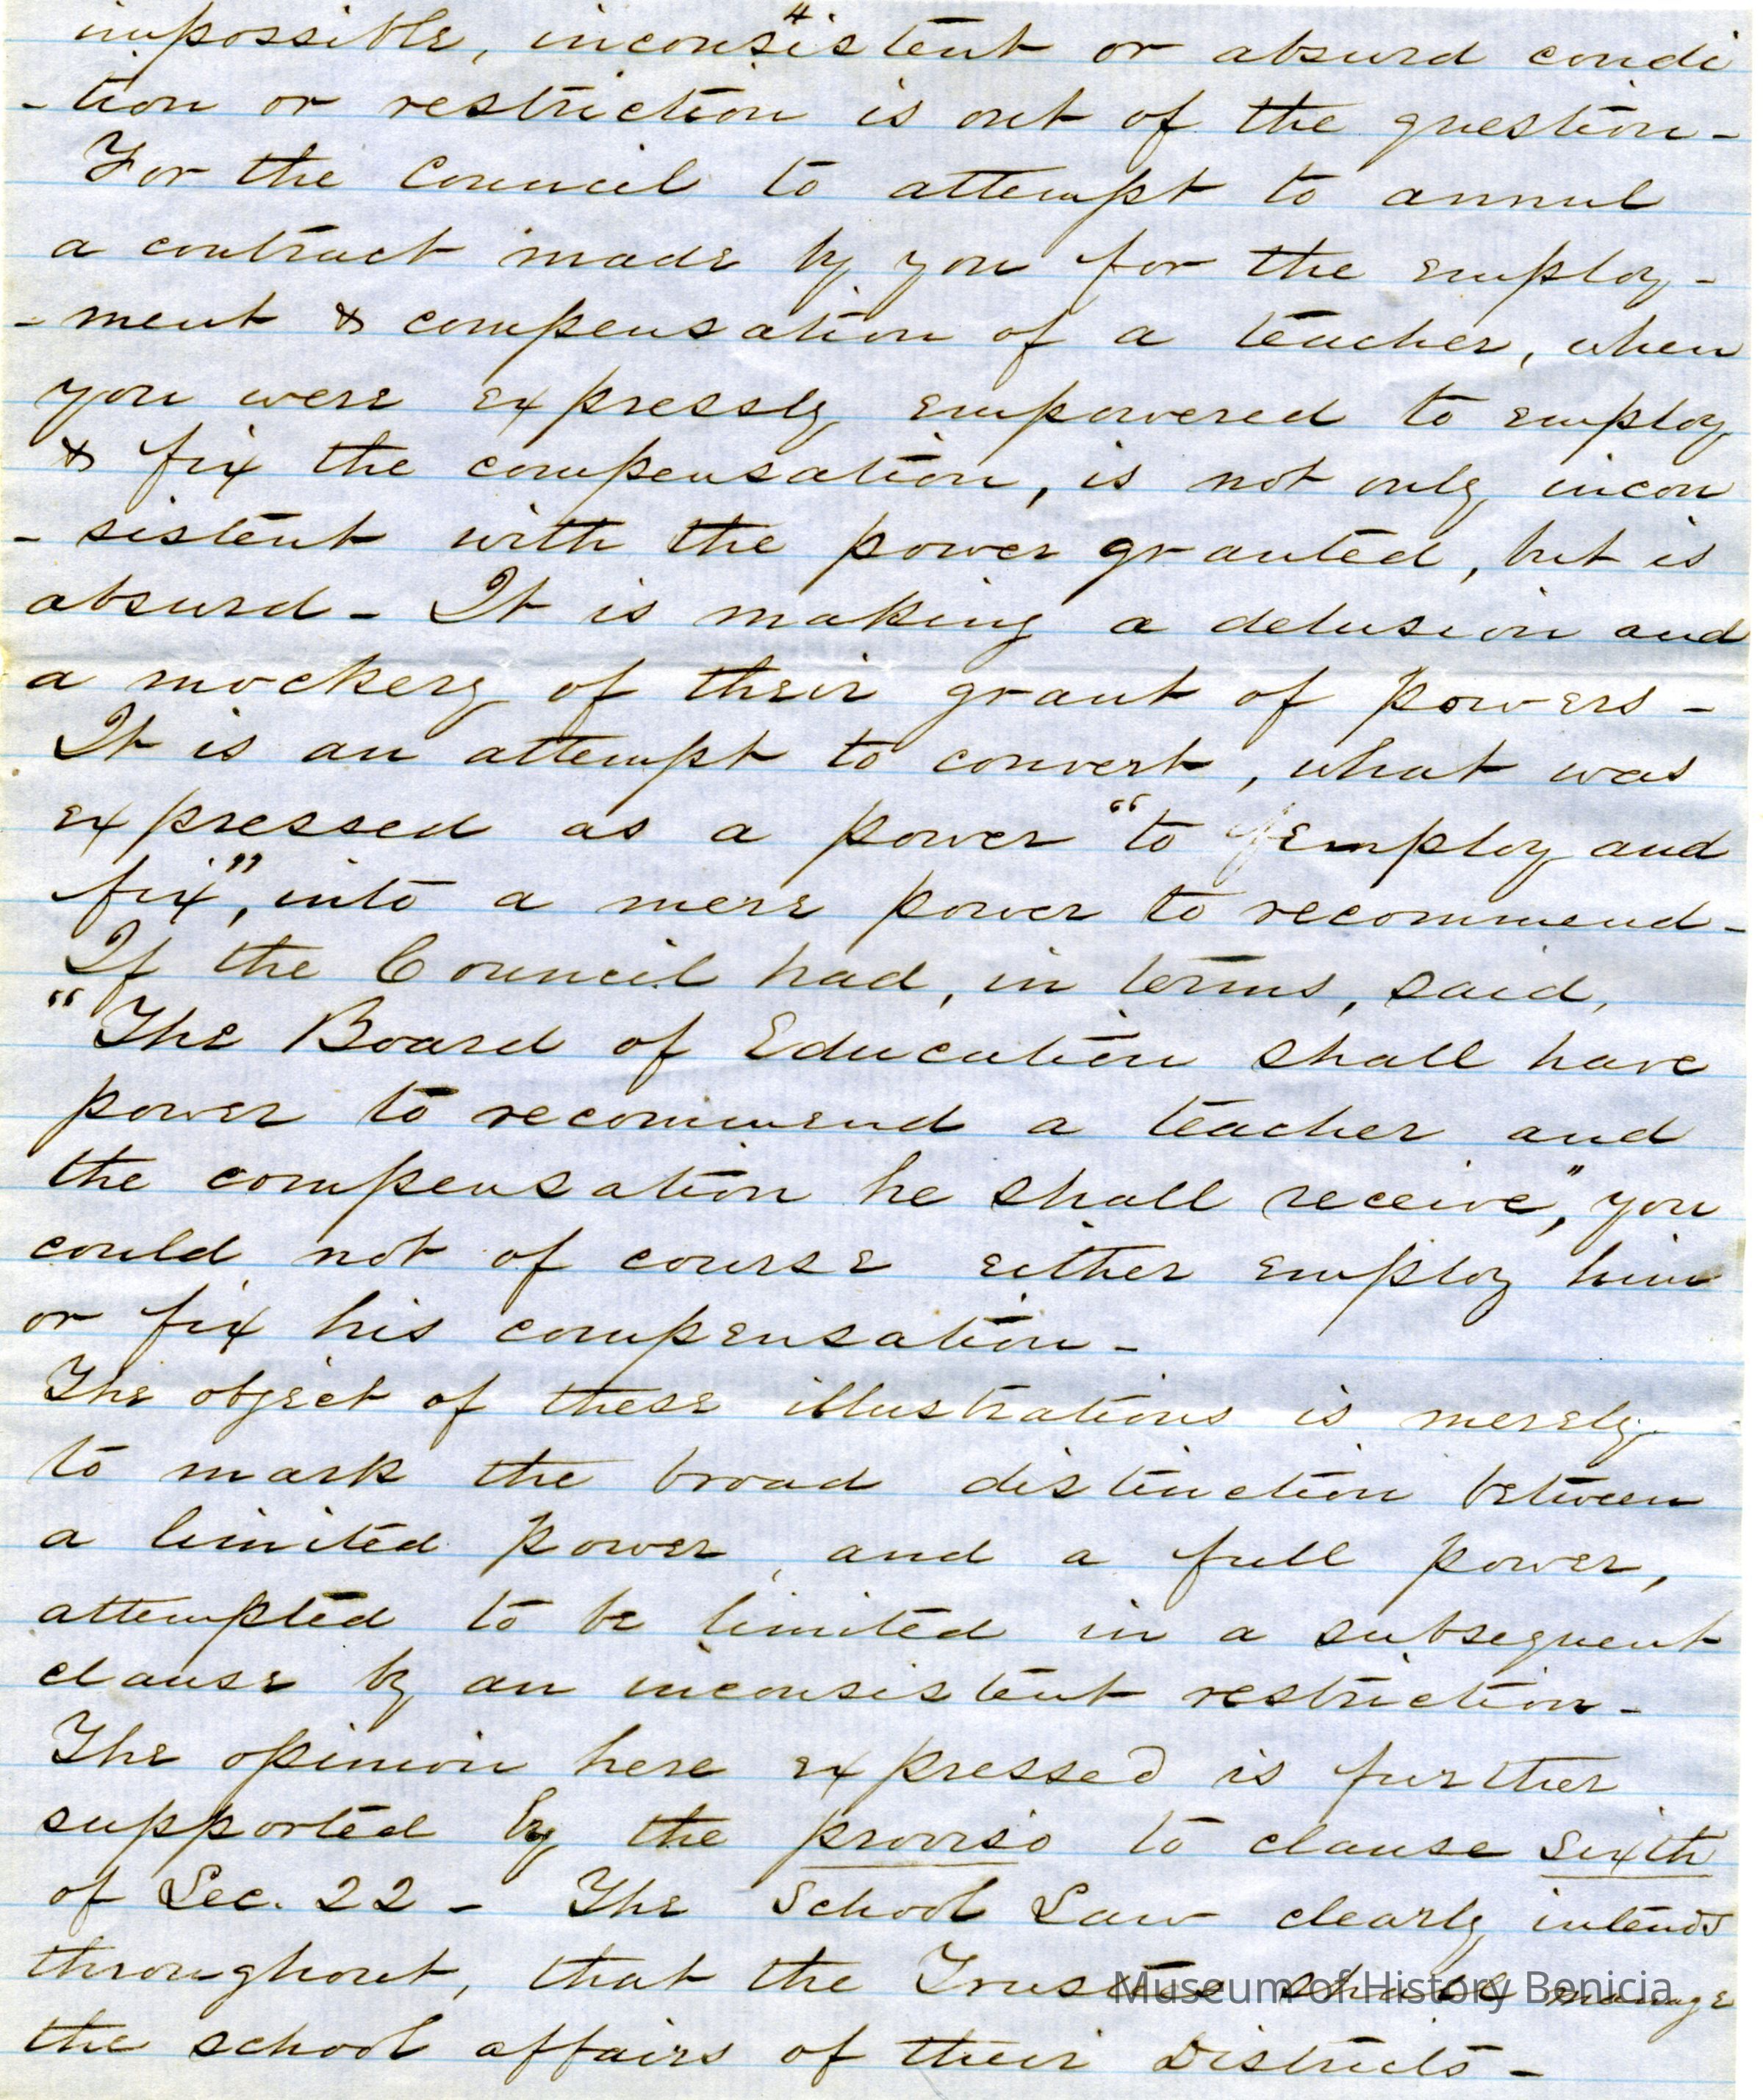 4
impossible, inconsistent or absurd condi
-tion or restriction is out of the question-
For the Council to attempt to annul
a contract made by you for the employ-
-ment & compensation of a teacher, when
you were expressly empowered to employ
& fix the compensation, is not only incon
-sistent with the power granted, but is
absurd- It is making a delusion and
a mockery of their grant of powers-
It is an attempt to convert, what was
expressed as a power "to employ and
fix", into a mere power to recommend-
If the Council had, in terms, said,
"The Board of Education shall have
power to recommend a teacher and
the compensation he shall receive", you
could not of course either employ him
or fix his compensation-
The object of these illustrations is merely
to mark the broad distinction between
a limited power, and a full power,
attempted to be limited in a subsequent
clause by an inconsistent restriction-
The opinion here expressed is further
supported by the proviso to clause sixth
of Sec. 22- The School Law clearly intends
throughout, that the Trustees shall manage
the school affairs of their Districts-
Museum of History Benicia